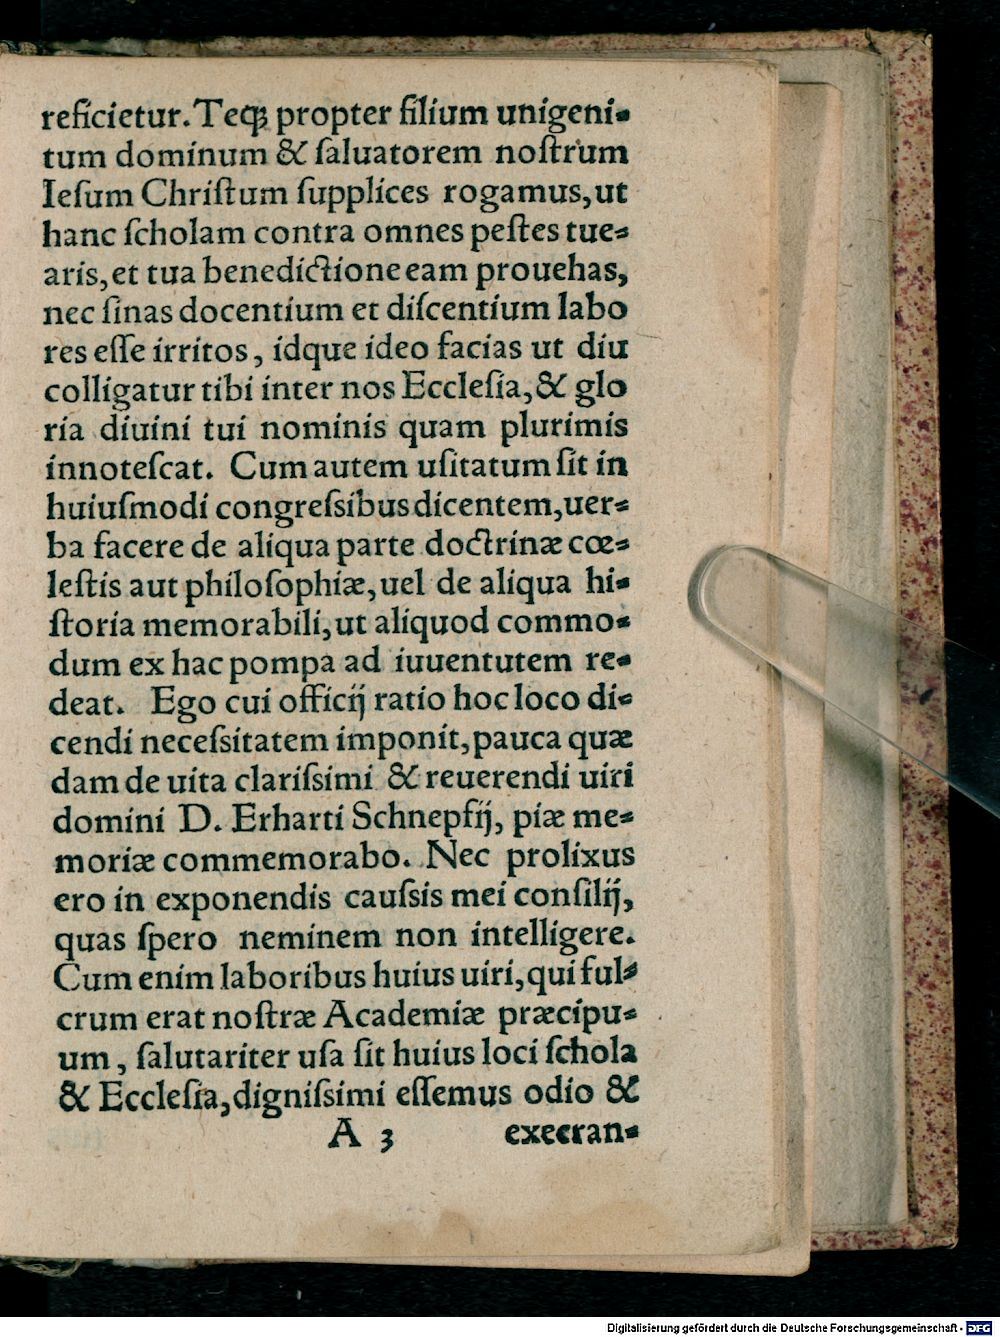 reficietur. Teq́ꝫ propter filium unigeni-
tum dominum & ſaluatorem noſtrum
Ieſum Chriſtum ſupplices rogamus, ut
hanc ſcholam contra omnes peſtes tue-
aris, et tua benedictione eam prouehas,
nec ſinas docentium et diſcentium labo
res eſſe irritos, idque ideo facias ut diu
colligatur tibi inter nos Eccleſia, & glo
ria diuini tui nominis quam plurimis
innoteſcat. Cum autem uſitatum ſit in
huiuſmodi congreſsibus dicentem, uer-
ba facere de aliqua parte doctrinæ cœ-
leſtis aut philoſophiæ, uel de aliqua hi-
ſtoria memorabili, ut aliquod commo-
dum ex hac pompa ad iuuentutem re-
deat. Ego cui officij ratio hoc loco di-
cendi neceſsitatem imponit, pauca quæ
dam de uita clariſsimi & reuerendi uiri
domini D. Erharti Schnepfij, piæ me-
moriæ commemorabo. Nec prolixus
ero in exponendis cauſsis mei conſilij,
quas ſpero neminem non intelligere.
Cum enim laboribus huius uiri, qui ful-
crum erat noſtræ Academiæ præcipu-
um, ſalutariter uſa ſit huius loci ſchola
& Eccleſia, digniſsimi eſſemus odio &
A 3 execran-
Digitalisierung gefördert durch die Deutsche Forschungsgemeinschaft - DFG